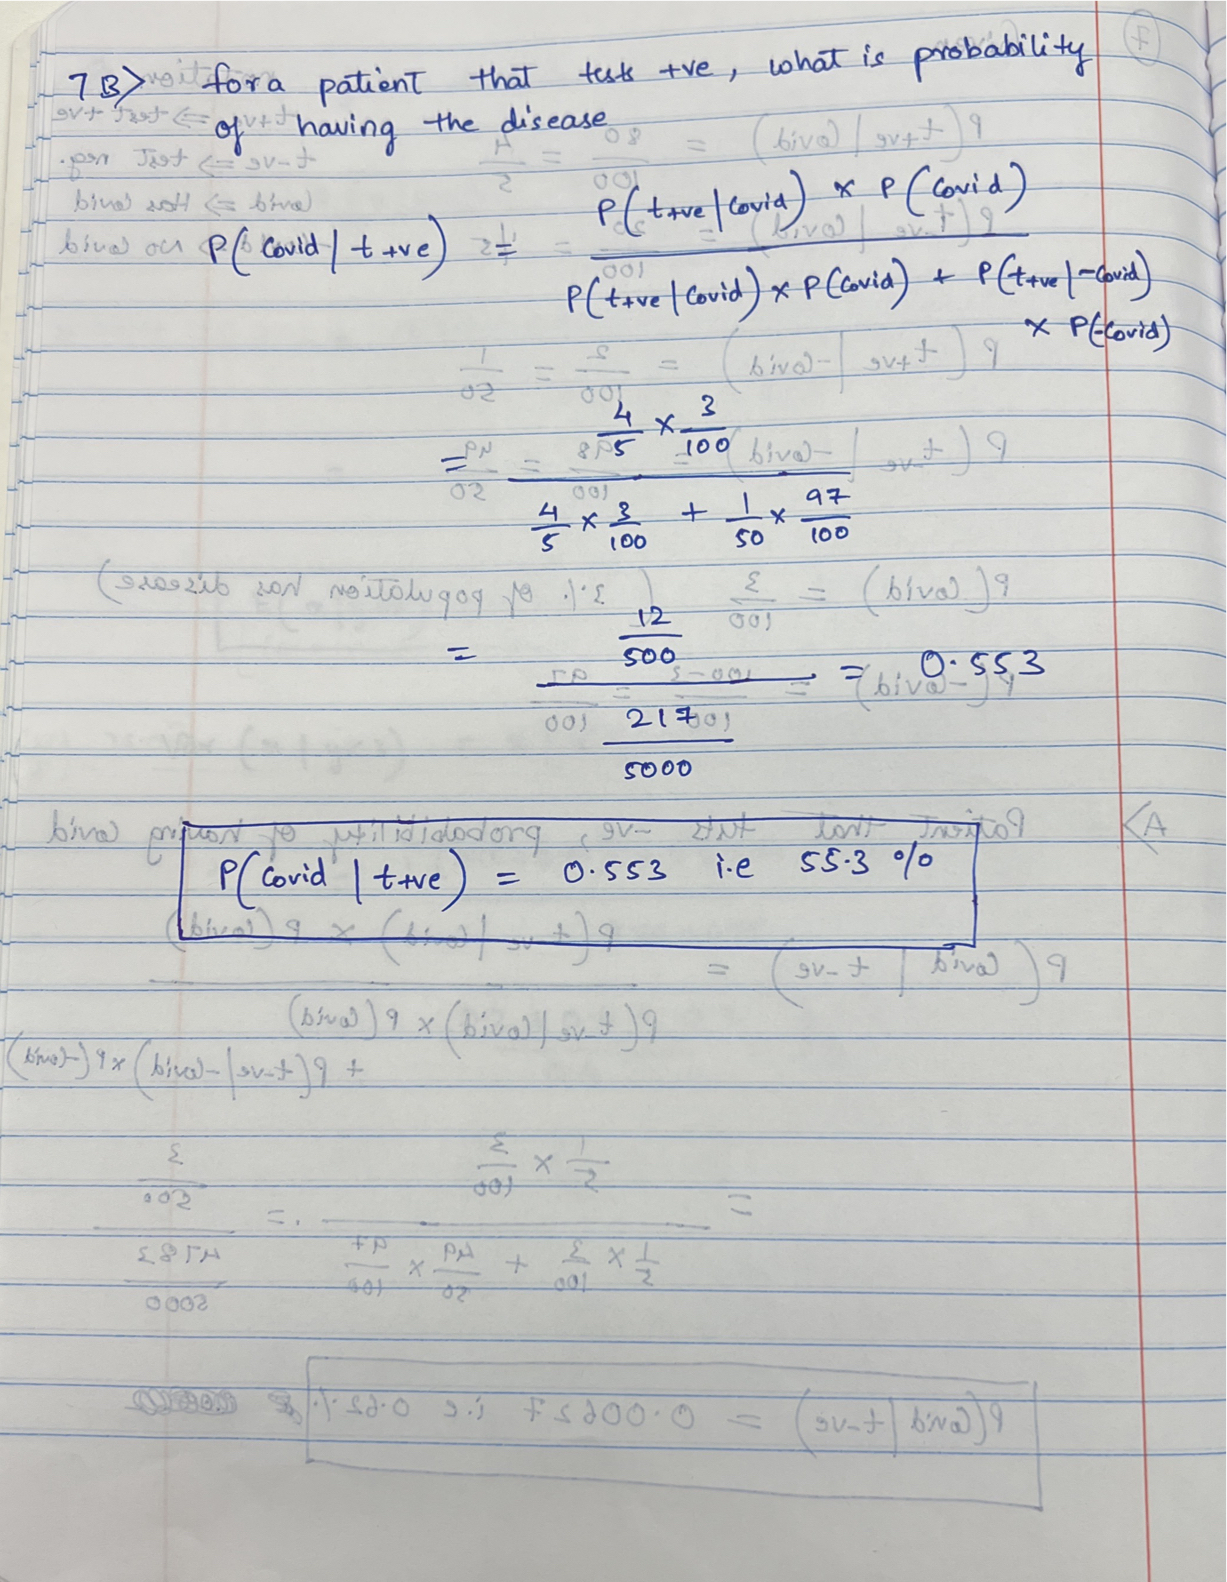 7B> for a patient that tests +ve, what is probability
of having the disease
P(Covid | t+ve) = P(t+ve | Covid) x P(Covid)
P(t+ve | Covid) x P(Covid) + P(t+ve | -Covid)
x P(-Covid)
= 4/5 x 3/100
4/5 x 3/100 + 1/50 x 97/100
= 12/500
217/5000 = 0.553
P(Covid | t+ve) = 0.553 i.e 55.3 %